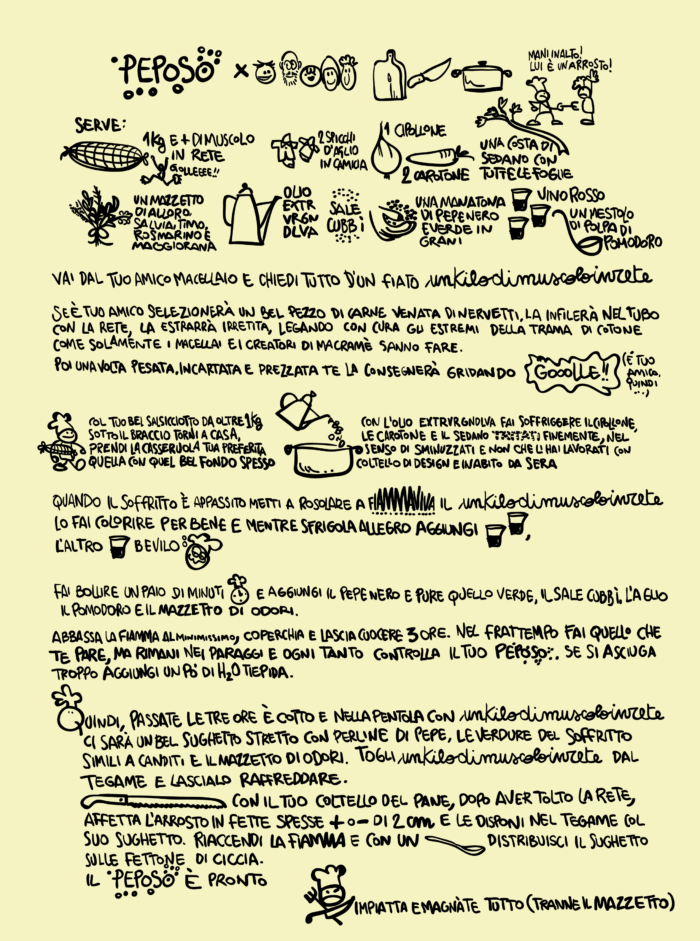 PEPOSO X
MANI IN ALTO!
LUI È UN ARROSTO!
SERVE:
1Kg E + DI MUSCOLO
IN RETE
GOLLEEEE!!
2 SPICCHI
D'AGLIO
IN CAMICIA
1 CIPOLLONE
2 CAROTONE
UNA COSTA DI
SEDANO CON
TUTTE LE FOGLIE
UN MAZZETTO
DI ALLORO,
SALVIA, TIMO,
ROSMARINO E
MAGGIORANA
OLIO
EXTR
VRGN
DLVA
SALE
CUBBÌ
UNA MANATONA
DI PEPE NERO
E VERDE IN
GRANI
VINO ROSSO
UN MESTOLO
DI POLPA DI
POMODORO
VAI DAL TUO AMICO MACELLAIO E CHIEDI TUTTO D'UN FIATO unkilodimuscoloinrete
SE È TUO AMICO SELEZIONERÀ UN BEL PEZZO DI CARNE VENATA DI NERVETTI, LA INFILERÀ NEL TUBO
CON LA RETE, LA ESTRARRÀ IRRETITA, LEGANDO CON CURA GLI ESTREMI DELLA TRAMA DI COTONE
COME SOLAMENTE I MACELLAI E I CREATORI DI MACRAMÈ SANNO FARE.
POI UNA VOLTA PESATA, INCARTATA E PREZZATA TE LA CONSEGNERÀ GRIDANDO GOOOLLE!! (È TUO
AMICO,
QUINDI
...)
COL TUO BEL SALSICCIOTTO DA OLTRE 1Kg
SOTTO IL BRACCIO TORNI A CASA,
PRENDI LA CASSERUOLA TUA PREFERITA
QUELLA CON QUEL BEL FONDO SPESSO
CON L'OLIO EXTRVRGNDLVA FAI SOFFRIGGERE IL CIPOLLONE,
LE CAROTONE E IL SEDANO TRITATI FINEMENTE, NEL
SENSO DI SMINUZZATI E NON CHE LI HAI LAVORATI CON
COLTELLO DI DESIGN E IN ABITO DA SERA
QUANDO IL SOFFRITTO È APPASSITO METTI A ROSOLARE A FIAMMAVIVA IL unkilodimuscoloinrete
LO FAI COLORIRE PER BENE E MENTRE SFRIGOLA ALLEGRO AGGIUNGI ,
L'ALTRO BEVILO
FAI BOLLIRE UN PAIO DI MINUTI E AGGIUNGI IL PEPE NERO E PURE QUELLO VERDE, IL SALE CUBBÌ, L'AGLIO
IL POMODORO E IL MAZZETTO DI ODORI.
ABBASSA LA FIAMMA AL MINIMISSIMO, COPERCHIA E LASCIA CUOCERE 3 ORE. NEL FRATTEMPO FAI QUELLO CHE
TE PARE, MA RIMANI NEI PARAGGI E OGNI TANTO CONTROLLA IL TUO PEPOSO. SE SI ASCIUGA
TROPPO AGGIUNGI UN PO' DI H2O TIEPIDA.
QUINDI, PASSATE LE TRE ORE È COTTO E NELLA PENTOLA CON unkilodimuscoloinrete
CI SARÀ UN BEL SUGHETTO STRETTO CON PERLINE DI PEPE, LE VERDURE DEL SOFFRITTO
SIMILI A CANDITI E IL MAZZETTO DI ODORI. TOGLI unkilodimuscoloinrete DAL
TEGAME E LASCIALO RAFFREDDARE.
CON IL TUO COLTELLO DEL PANE, DOPO AVER TOLTO LA RETE,
AFFETTA L'ARROSTO IN FETTE SPESSE + O - DI 2 cm E LE DISPONI NEL TEGAME COL
SUO SUGHETTO. RIACCENDI LA FIAMMA E CON UN DISTRIBUISCI IL SUGHETTO
SULLE FETTONE DI CICCIA.
IL PEPOSO È PRONTO
IMPIATTA E MAGNATE TUTTO (TRANNE IL MAZZETTO)